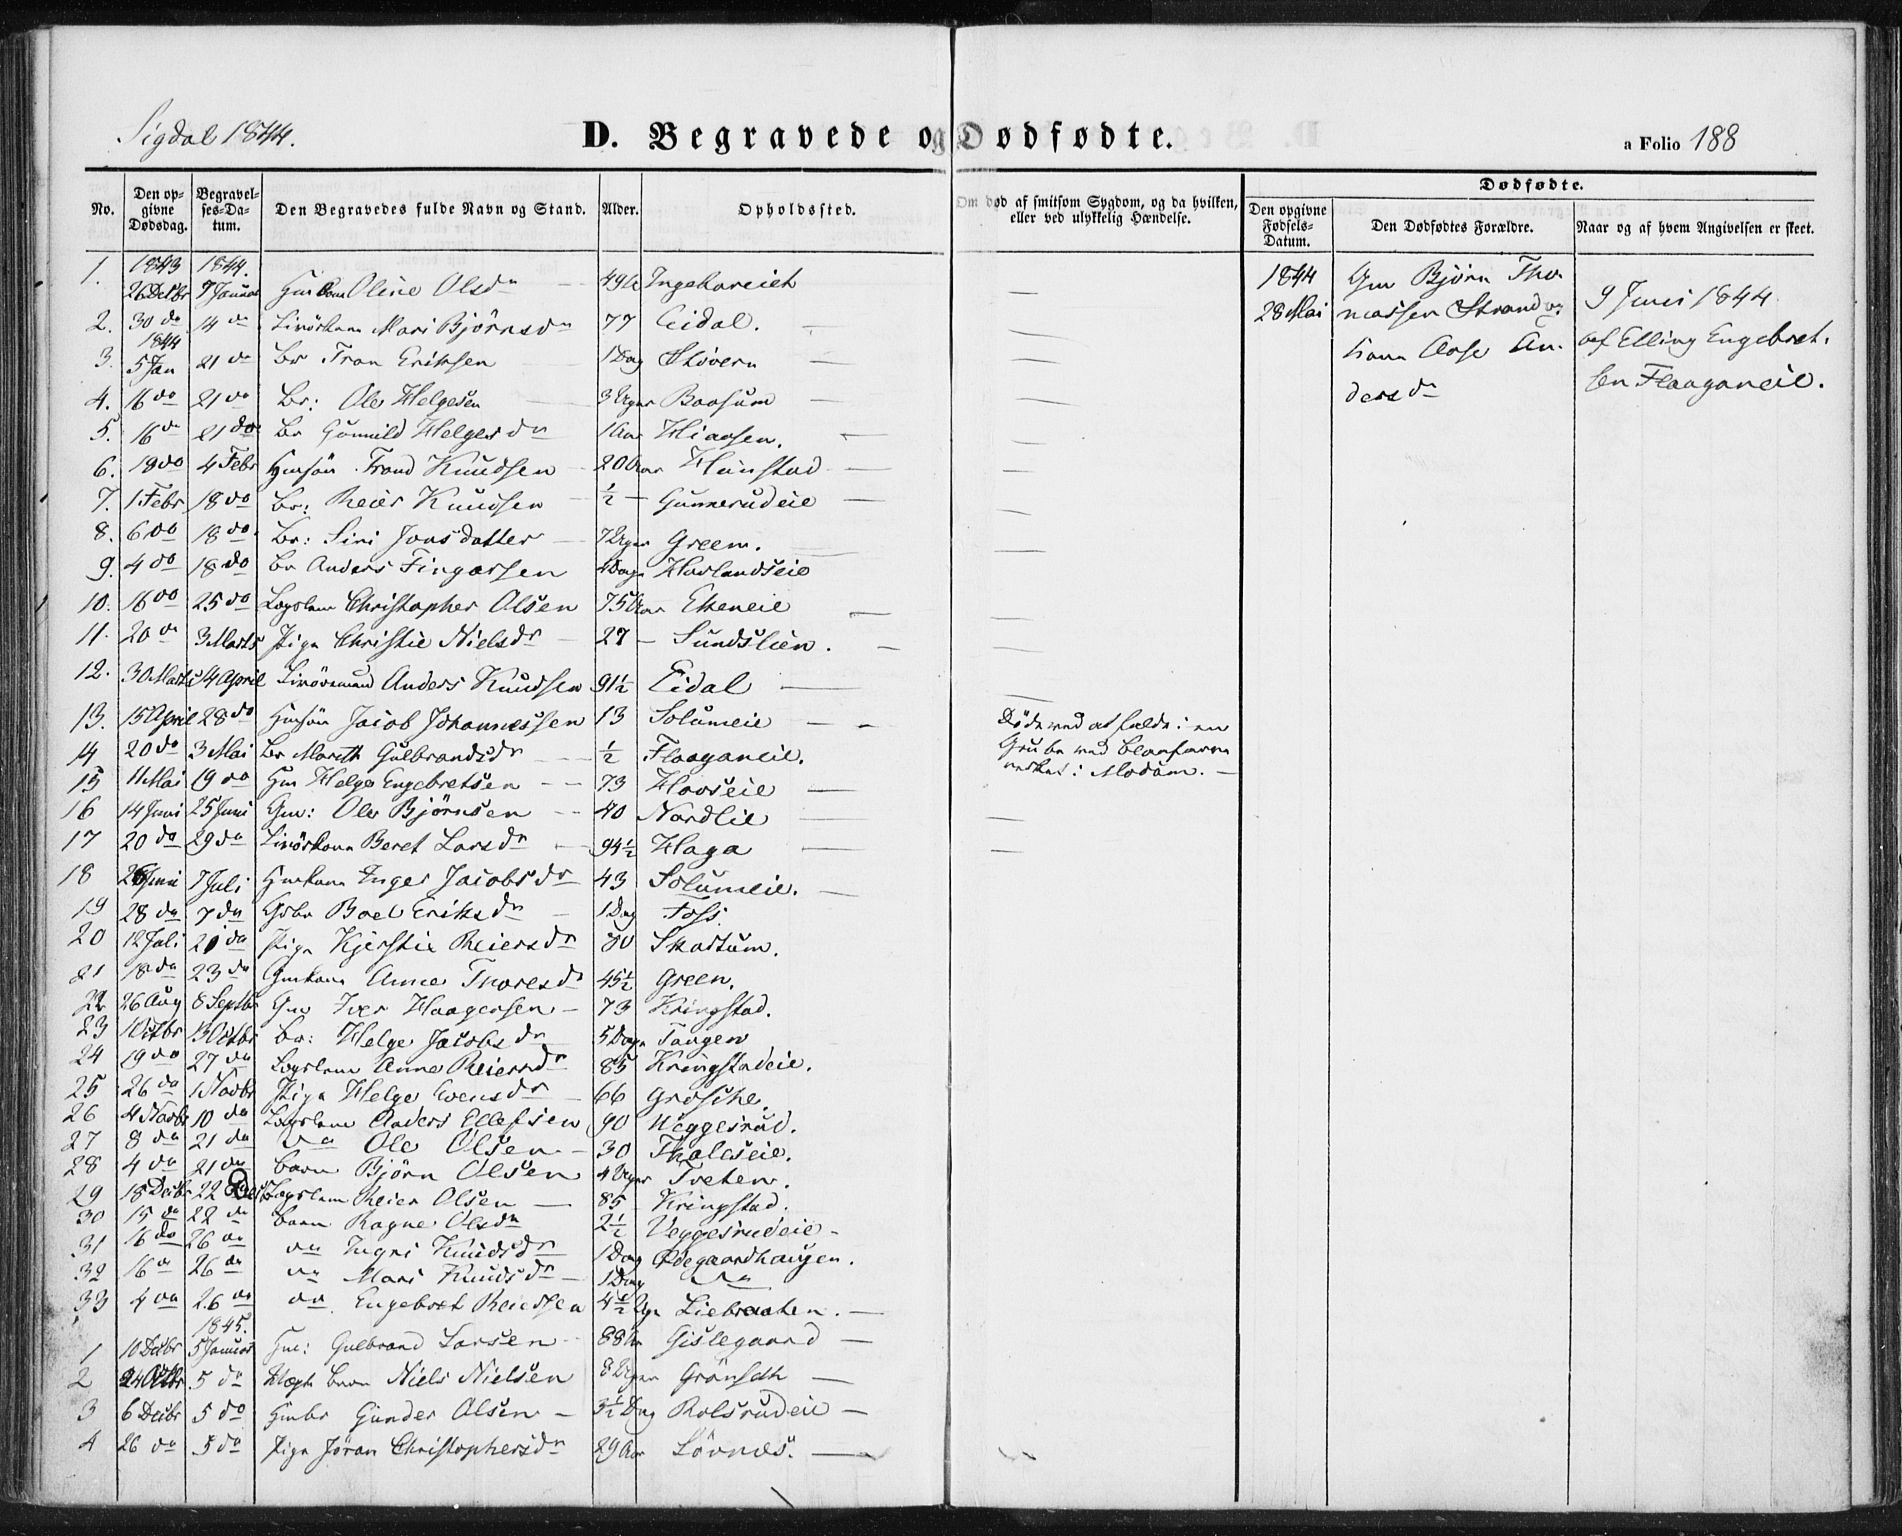 Sigdal 1844.
D. Begravede og Dødfødte.
a Folio 188
No.
Den opgivne Dødsdag.
Begravelses-Datum.
Den Begravedes fulde Navn og Stand.
Alder.
Opholdssted.
Om død af smitsom Sygdom, og da hvilken, eller ved ulykkelig Hændelse.
Dødfødte.
Den opgivne Fødsels-Datum.
Den Dødfødtes Forældre.
Naar og af hvem Angivelsen er skeet.
1843 1844.
1. 26 Decbr 7 Januar Oline Olsdr 49
2. 30 do 14 do Mari Björnsdr 77 Eidal.
1844
3. 5 Jan 21 do Br Eriksen 1 Dag Støvern
4. 16 do 21 do Br: Ole Helgesen 3 Uger Baasum
5. 16 do 21 do Br Gunnild Helgesdr 1 Aar
6. 19 do 4 Febr Knudsen 20 Aar
7. 1 Febr 18 do Br: Reier Knudsen ½ Gunnerudeie
8. 6 do 18 do Br: Siri Jonsdatter 7 Uger Green.
9. 4 do 18 do Br Anders Fingarsen Dage Hovlandseie
10. 16 do 25 do Lægslem Christopher Olsen 75 Aar Ekeneie
11. 20 do 3 Marts Pige Christie Nielsdr 27 Sundslien.
12. 30 Marts 14 April Anders Knudsen 91½ Eidal
13. 15 April 28 do Hmsøn Jacob Johannessen 13 Solumeie
Døde ved at falde i en Grube ved Blaafarveverket i Modum.
14 20 do 3 Mai Br Marith Gulbrandsdr ½ Flaaganeie.
15 11 Mai 19 do Hm Helge Engebretsen 73 Hovseie
16 14 Juni 25 Juni Gm: Ole Björnsen 40 Nordlie
17 20 do 29 do Beret Larsdr 94½ Haga
18 26 Juni 7 Juli Hmkone Inger Jacobsdr 43 Solumeie.
19 28 do 7 do Gbr Boel Eriksdr 1 Dag Foss.
20 12 Juli 21 do Pige Kjerstie Reiersdr Skartum.
21 18 do 23 do Gmkone Anne Thoresdr 45½ Green.
22 26 Aug 8 Septbr Gm Iver Haagensen 73 Kringstad.
23 1 Octbr 13 Octbr Br: Helge Jacobsdr 5 Dage Tangen
24 19 do 27 do Lægslem Anne Reiersdr 85 Kringstadeie.
25 26 do 1 Novbr Pige Helge Evensdr 66
26 4 Novbr 10 do Lægslem Anders Ellefsen 90 Weggesrud.
27 8 do 21 do do Ole Olsen 30
28 4 do 21 do Barn Björn Olsen 4 Uger Tveten.
29 18 Decbr 22 Decbr Lægslem Reier Olsen 85 Kringstad.
30 15 do 22 do Barn Ragne Olsdr 2½ Veggesrudeie
31 16 do 26 do do Ingri Knudsdr 1 Dag Ødegaardhaugen.
32 16 do 26 do do Mari Knudsdr 1 Dag do
33 4 do 26 do do Engebret Reiersen 4½ Uge Liebraaten.
1845.
1 10 Decbr 5 Januar Gm: Gulbrand Larsen 88 Aar Gislegaard
2 24 Octbr 5 do Barn Niels Nielsen 8 Uger Grönseth
3 6 Decbr 5 do Hmbr Gunder Olsen 3½ Dag Rolsrudeie
4 26 do 5 do Pige Jöran Christophersdr 29 Aar Lövnes.
1844
28 Mai
Gm Björn Thomassen Strand og Kone Aase Andersdr
9 Juni 1844
af Elling Engebretsen Flaaganeie.